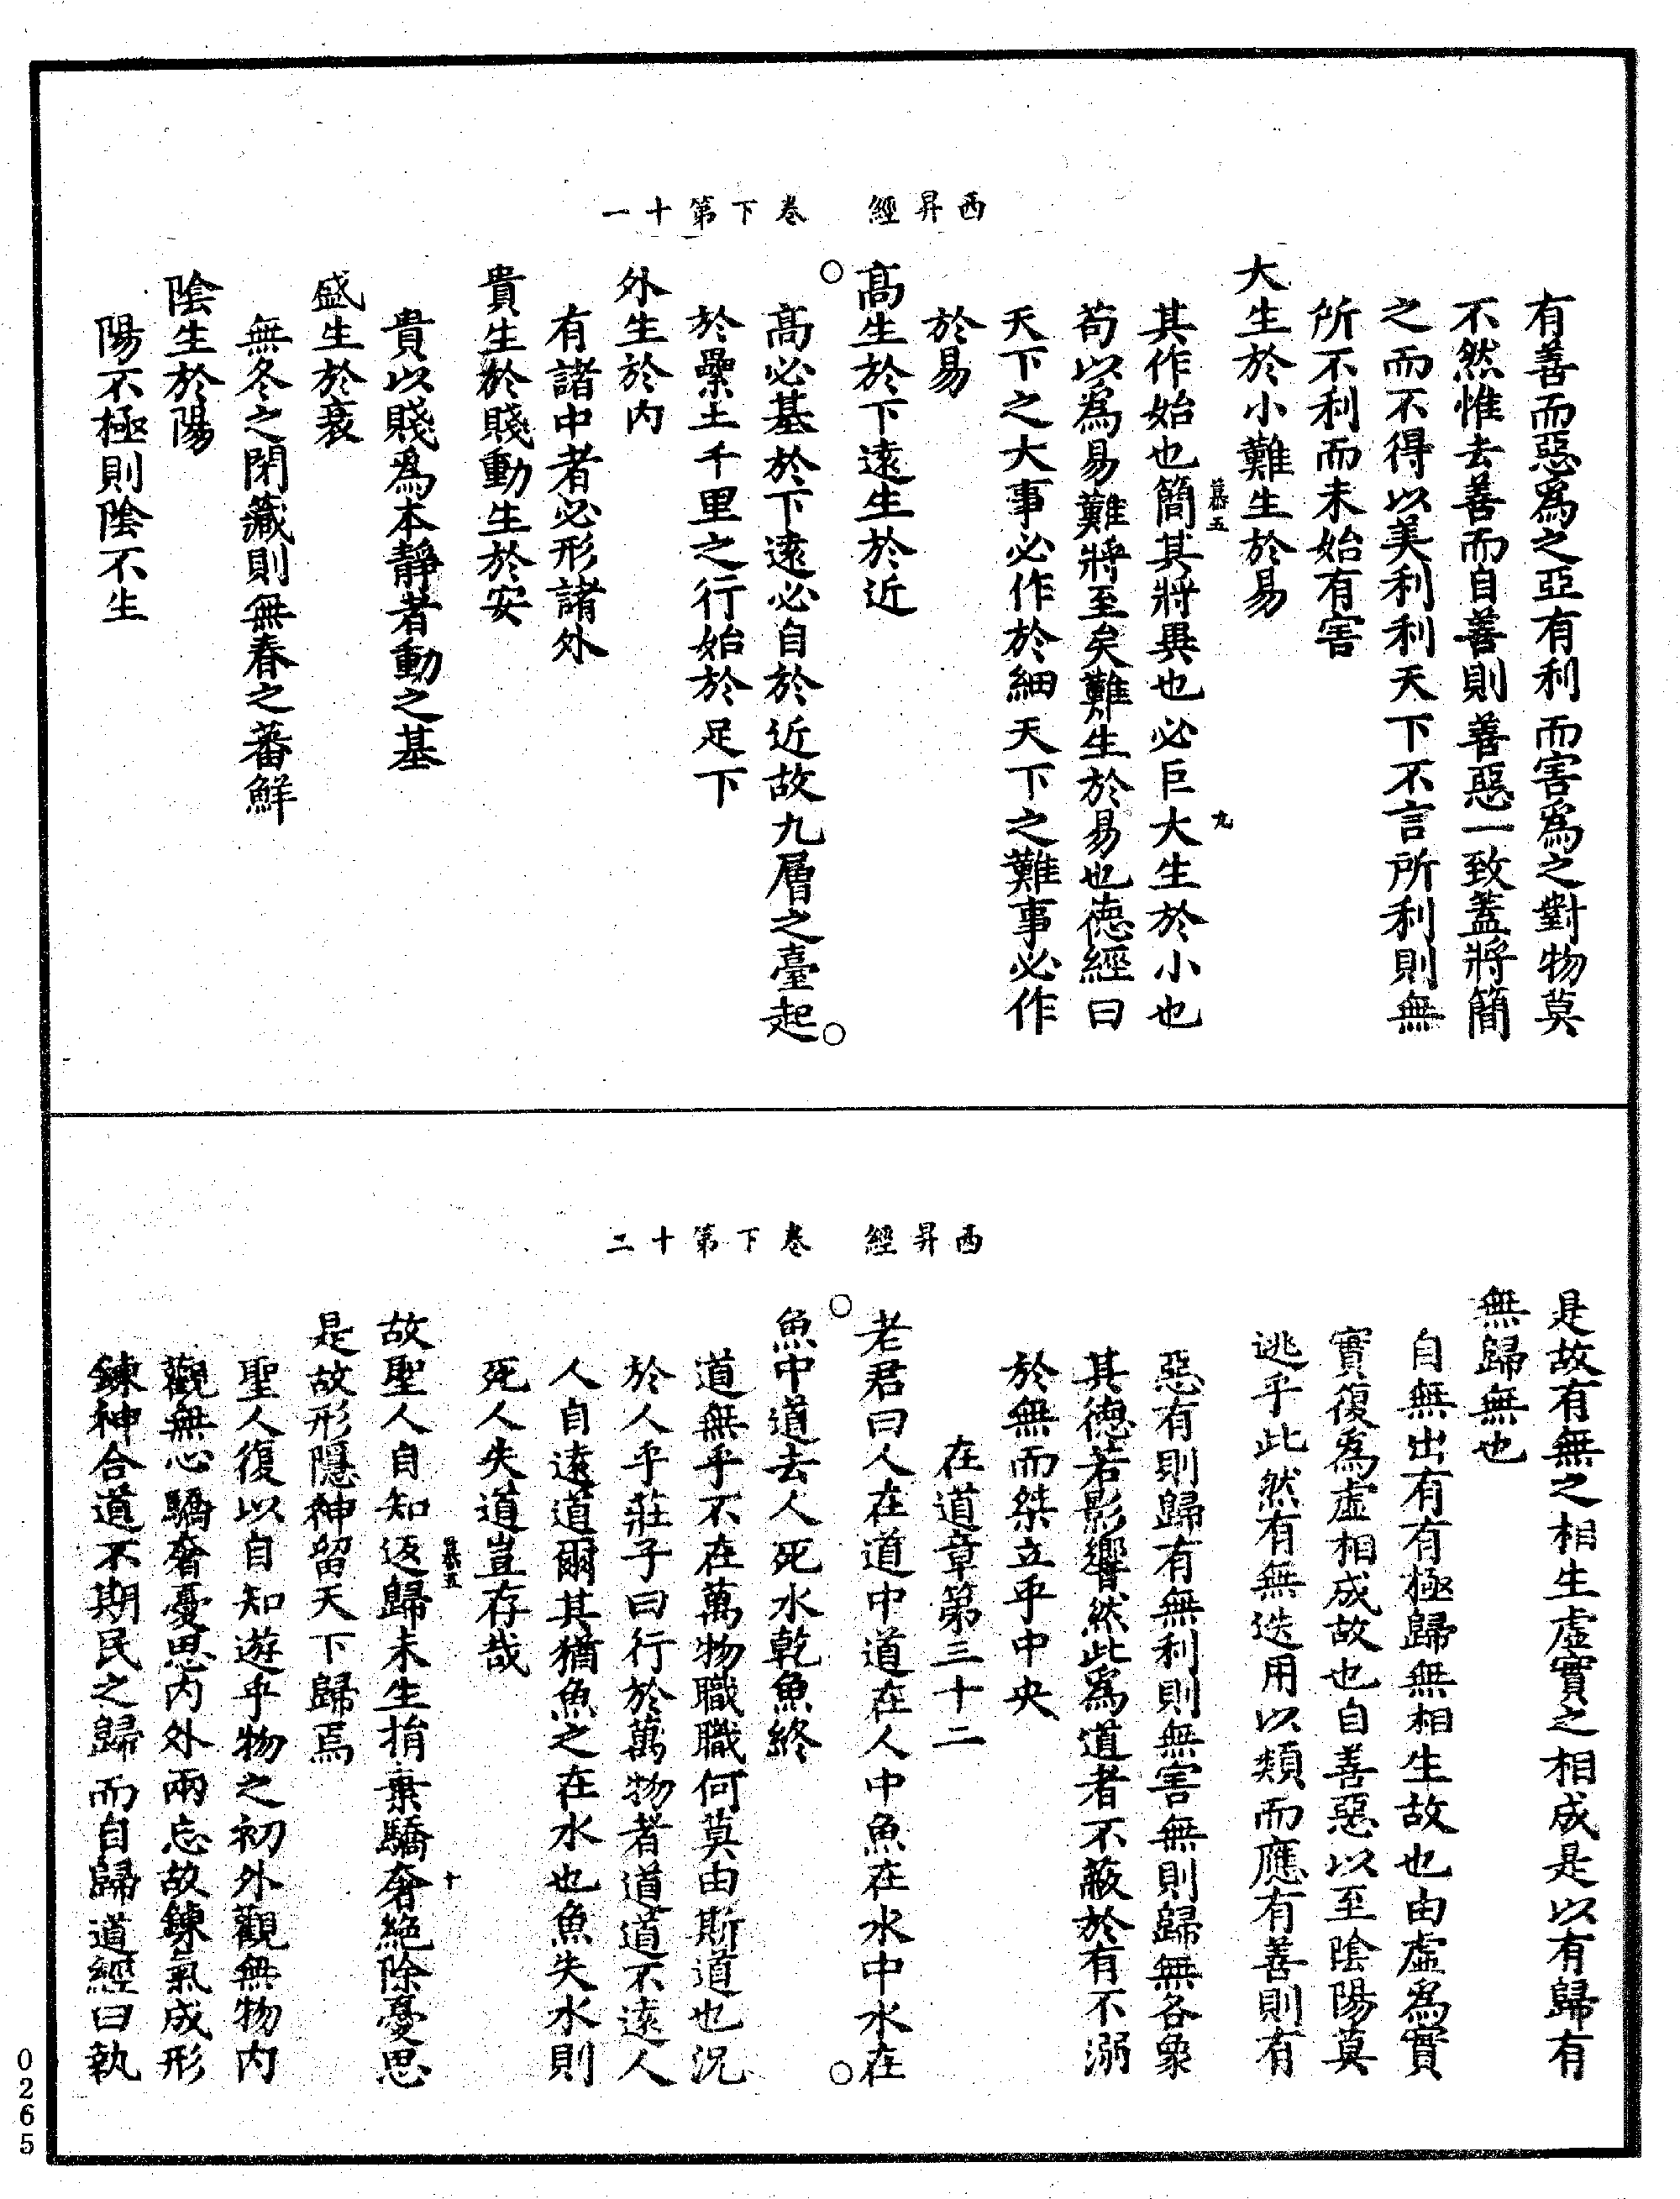 西昇經　卷下第十一
有善而惡爲之亞有利而害爲之對物莫
不然惟去善而自善則善惡一致蓋將簡
之而不得以美利利天下不言所利則無
所不利而未始有害
大生於小難生於易
其作始也簡其將畢也必巨大生於小也
苟以爲易難將至矣難生於易也德經曰
天下之大事必作於細天下之難事必作
於易
高生於下遠生於近
高必基於下遠必自於近故九層之臺起
於壘土千里之行始於足下
外生於内
有諸中者必形諸外
貴生於賤動生於安
貴以賤爲本靜者動之基
盛生於衰
無冬之閉藏則無春之蕃鮮
陰生於陽
陽不極則陰不生
慕五
九
西昇經　卷下第十二
是故有無之相生虛實之相成是以有歸有
無歸無也
自無出有有極歸無相生故也由虛爲實
實復爲虛相成故也自善惡以至陰陽莫
逃乎此然有無迭用以類而應有善則有
惡有則歸有無利則無害無則歸無各象
其德若影響然此爲道者不蔽於有不溺
於無而桀立乎中央
在道章第三十二
老君曰人在道中道在人中魚在水中水在
魚中道去人死水乾魚終
道無乎不在萬物職職何莫由斯道也況
於人乎莊子曰行於萬物者道道不遠人
人自遠道爾其猶魚之在水也魚失水則
死人失道豈存哉
故聖人自知返歸未生捐棄驕奢絕除憂思
是故形隱神留天下歸焉
聖人復以自知遊乎物之初外觀無物内
觀無心驕奢憂思内外兩忘故鍊氣成形
鍊神合道不期民之歸而自歸道經曰執
慕五
十
0265